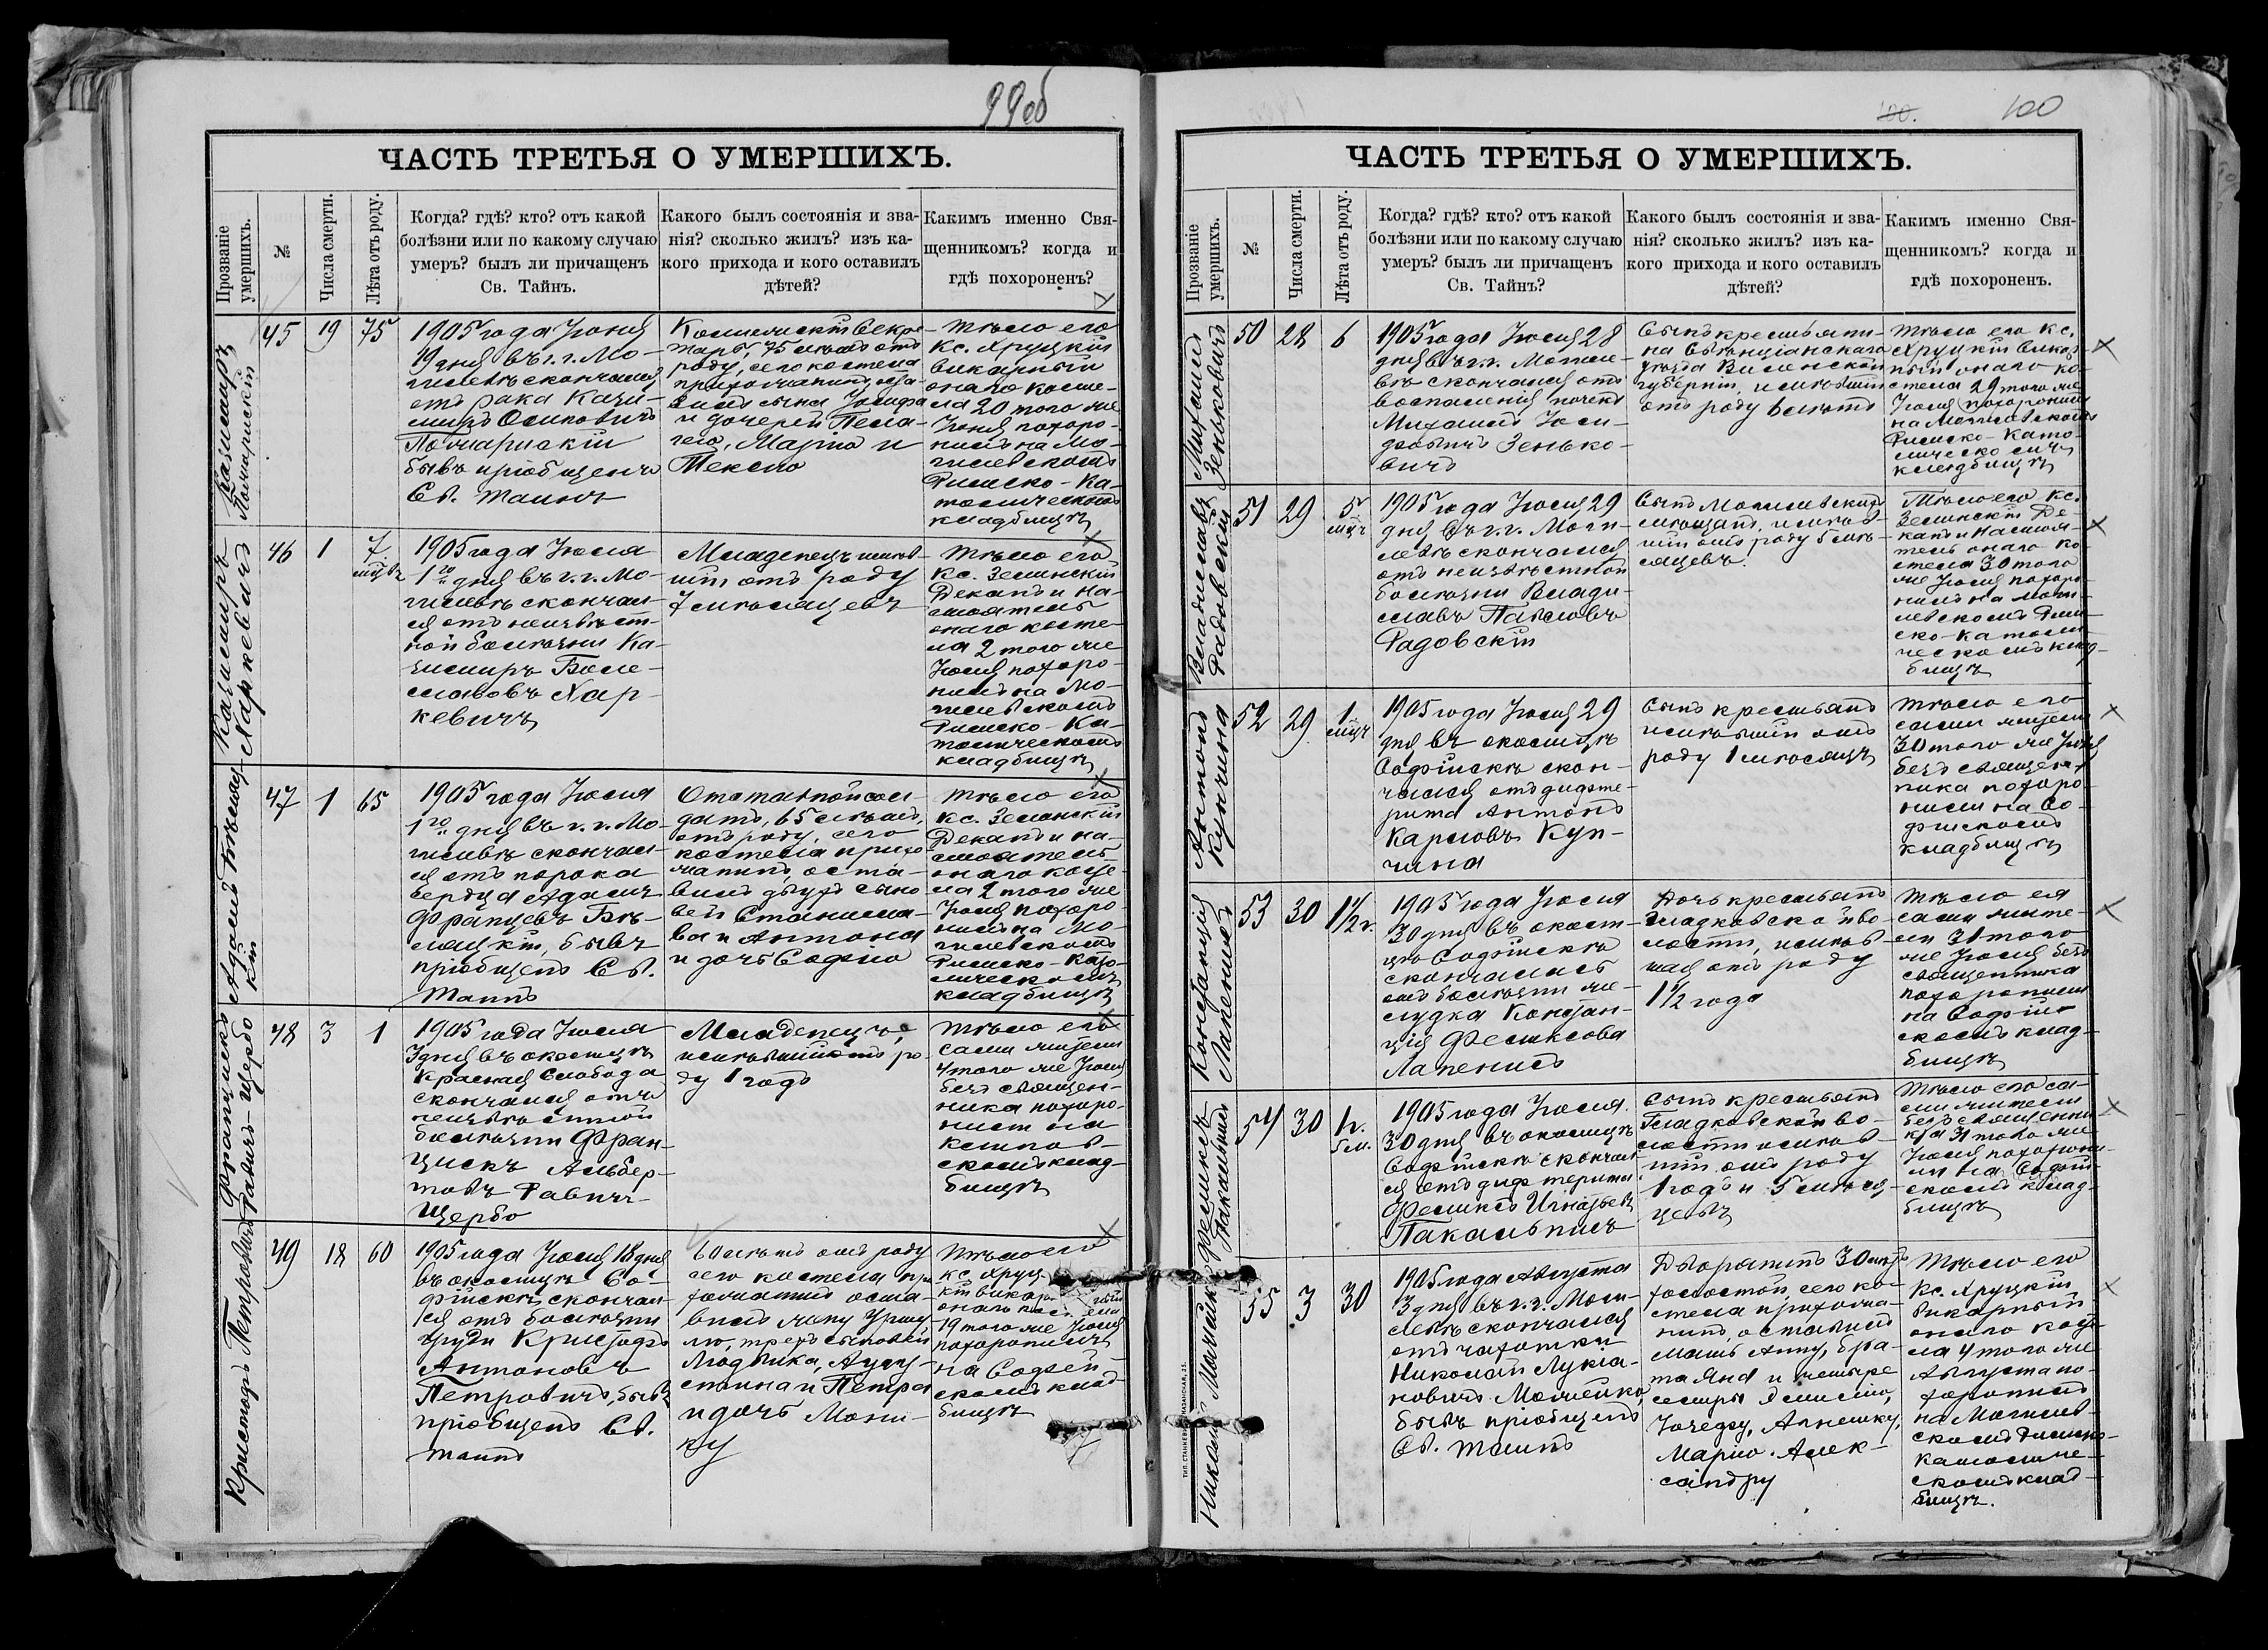 99об
ЧАСТЬ ТРЕТЬЯ О УМЕРШИХЪ.
Прозваніе умершихъ.
№
Числа смерти.
Лѣта отъ роду.
Когда? гдѣ? кто? отъ какой
болѣзни или по какому случаю
умеръ? былъ ли причащенъ
Св. Тайнъ.
Какого былъ состоянія и зва-
нія? сколько жилъ? изъ ка-
кого прихода и кого оставилъ
дѣтей?
Какимъ именно Свя-
щенникомъ? когда и
гдѣ похороненъ?
Казимиръ
45
19
75
1905 года Іюня
19 дня въ г. г. Мо-
гилевѣ скончался
отъ рака Кази-
миръ Осиповичъ
бывъ пріобщенъ
Св. Таинъ
75 лѣтъ отъ
роду, сего костела
прихожанинъ, оста-
вилъ сына Іосифа
и дочерей Пела-
гею, Марію и
Теклю
Тѣло его
Кс. Хруцкій
викарный
онаго косте-
ла 20 того же
Іюня похоро-
нилъ на Мо-
гилевскомъ
Римско-Ка-
толическомъ
кладбищѣ
Казимиръ
Харкевичъ
46
1
7
мцвъ
1905 года Іюля
1го дня въ г. г. Мо-
гилевѣ скончал-
ся отъ неизвѣст-
ной болѣзни Ка-
зимиръ Боле-
славовъ Хар-
кевичъ
Младенецъ имѣв-
шій отъ роду
7 мѣсяцевъ
Тѣло его
Кс. Зелинскій
Деканъ и на-
стоятель
онаго косте-
ла 2 того же
Іюля похоро-
нилъ на Мо-
гилевскомъ
Римско-Ка-
толическомъ
кладбищѣ
Адамъ Бѣляц-
кій
47
1
65
1905 года Іюля
1го дня въ г. г. Мо-
гилевѣ скончал-
ся отъ порока
сердца Адамъ
Францевъ Бѣ-
ляцкій, бывъ
пріобщенъ Св.
Таинъ
Отставной сол-
датъ, 65 лѣтъ
отъ роду, сего
костела прихо
жанинъ, оста-
вилъ двухъ сыно
вей Станисла-
ва и Антона
и дочь Софію
Тѣло его
Кс. Зелинскій
Деканъ и на-
стоятель
онаго косте-
ла 2 того же
Іюля похоро-
нилъ на Мо-
гилевскомъ
Римско-Като-
лическомъ
кладбищѣ
Францискъ
Равичъ-Щербо
48
3
1
1905 года Іюля
3 дня въ околицѣ
Красная Слобода
скончался отъ
неизвѣстной
болѣзни Фран-
цискъ Альбер-
товъ Равичъ-
Щербо
Младенецъ,
имѣвшій отъ ро-
ду 1 годъ
Тѣло его
сами жители
4 того же Іюля
безъ священ-
ника похоро-
нили на
скомъ клад-
бищѣ
Кристофъ Петровичъ
49
18
60
1905 года Іюля 18 дня
въ околицѣ Со-
фійскѣ скончал-
ся отъ болѣзни
груди Кристофъ
Антоновъ
Петровичъ, бывъ
пріобщенъ Св.
Таинъ
60 лѣтъ отъ роду
сего костела при
хожанинъ оста-
вилъ жену Уршу-
лю, трехъ сыновей
Людвика, Авгу-
стина и Петра
и дочь Мони-
ку
Тѣло его
Кс. Хруц-
кій викарный
онаго костела
19 того же Іюля
похоронилъ
на Софей-
скомъ клад-
бищѣ
100.
100
ЧАСТЬ ТРЕТЬЯ О УМЕРШИХЪ.
Прозваніе умершихъ.
№
Числа смерти.
Лѣта отъ роду.
Когда? гдѣ? кто? отъ какой
болѣзни или по какому случаю
умеръ? былъ ли причащенъ
Св. Тайнъ?
Какого былъ состоянія и зва-
нія? сколько жилъ? изъ ка-
кого прихода и кого оставилъ
дѣтей?
Какимъ именно Свя-
щенникомъ? когда и
гдѣ похороненъ.
Михаилъ
Зеньковичъ
50
28
6
1905 года Іюля 28
дня въ г. г. Могиле-
вѣ скончался отъ
воспаленія почекъ
Михаилъ Іоси-
фовичъ Зенько-
вичъ
Сынъ крестьяни-
на Свенцянскаго
уѣзда Виленской
губерніи, имѣвшій
отъ роду 6 лѣтъ
Тѣло его Кс.
Хруцкій викар-
ный онаго ко-
стела 29 того же
Іюля похоронилъ
на Могилевскомъ
Римско-Като-
лическомъ
кладбищѣ
Владиславъ
Радовскій
51
29
5
мцъ
1905 года Іюля 29
дня въ г. г. Моги-
левѣ скончался
отъ неизвѣстной
болѣзни Влади-
славъ Павловъ
Радовскій
Сынъ Могилевскихъ
мѣщанъ, имѣв-
шій отъ роду 5 мѣ-
сяцевъ.
Тѣло его Кс.
Зелинскій Де-
канъ и настоя-
тель онаго ко-
стела 30 того
же Іюля похоро-
нилъ на Моги-
левскомъ Рим-
ско-католи-
ческомъ клад-
бищѣ
Антонъ
Купчина
52
29
1
мцъ
1905 года Іюля 29
дня въ околицѣ
Софійскѣ скон-
чался отъ дифте-
рита Антонъ
Карловъ Куп-
чина
Сынъ крестьянъ
имѣвшій отъ
роду 1 мѣсяцъ
Тѣло его
сами жители
30 того же Іюля
безъ священ-
ника похоро-
нили на Со-
фійскомъ
кладбищѣ
Констанція
Лапенисъ
53
30
1½ г.
1905 года Іюля
30 дня въ околи-
цѣ Софійскѣ
скончалась
отъ болѣзни же-
лудка Констан-
ція Феликсова
Лапенисъ
Дочь крестьянъ
Гладковской во-
лости, имѣв-
шая отъ роду
1½ года
Тѣло ея
сами жите-
ли 31 того
же Іюля безъ
священника
похоронили
на Софій-
скомъ клад-
бищѣ
Феликсъ
Пакальнисъ
54
30
1г.
5м.
1905 года Іюля
30 дня въ околицѣ
Софійскѣ скончал-
ся отъ дифтерита
Феликсъ Игнатьевъ
Пакальнисъ
Сынъ крестьянъ
Гладковской во-
лости имѣв-
шій отъ роду
1 годъ и 5 мѣся-
цевъ
Тѣло его са-
ми жители
безъ священни-
ка 31 того же
Іюля похорони-
ли на Софій-
скомъ клад-
бищѣ
Николай
55
3
30
1905 года Августа
3 дня въ г. г. Моги-
левѣ скончался
отъ чахотки
Николай Лукіа-
новичъ
бывъ пріобщенъ
Св. Таинъ
Дворянинъ 30 лѣтъ
холостой, сего ко-
стела прихожа-
нинъ, оставилъ
мать Анну, бра-
та Яна и четыре
сестры Эмилію,
Юзефу, Агнешку,
Марію-Алек-
сандру
Тѣло его
Кс. Хруцкій
викарный
онаго косте-
ла 4 того же
Августа по-
хоронилъ
на Могилев-
скомъ Римско-
католиче-
скомъ клад-
бищѣ.